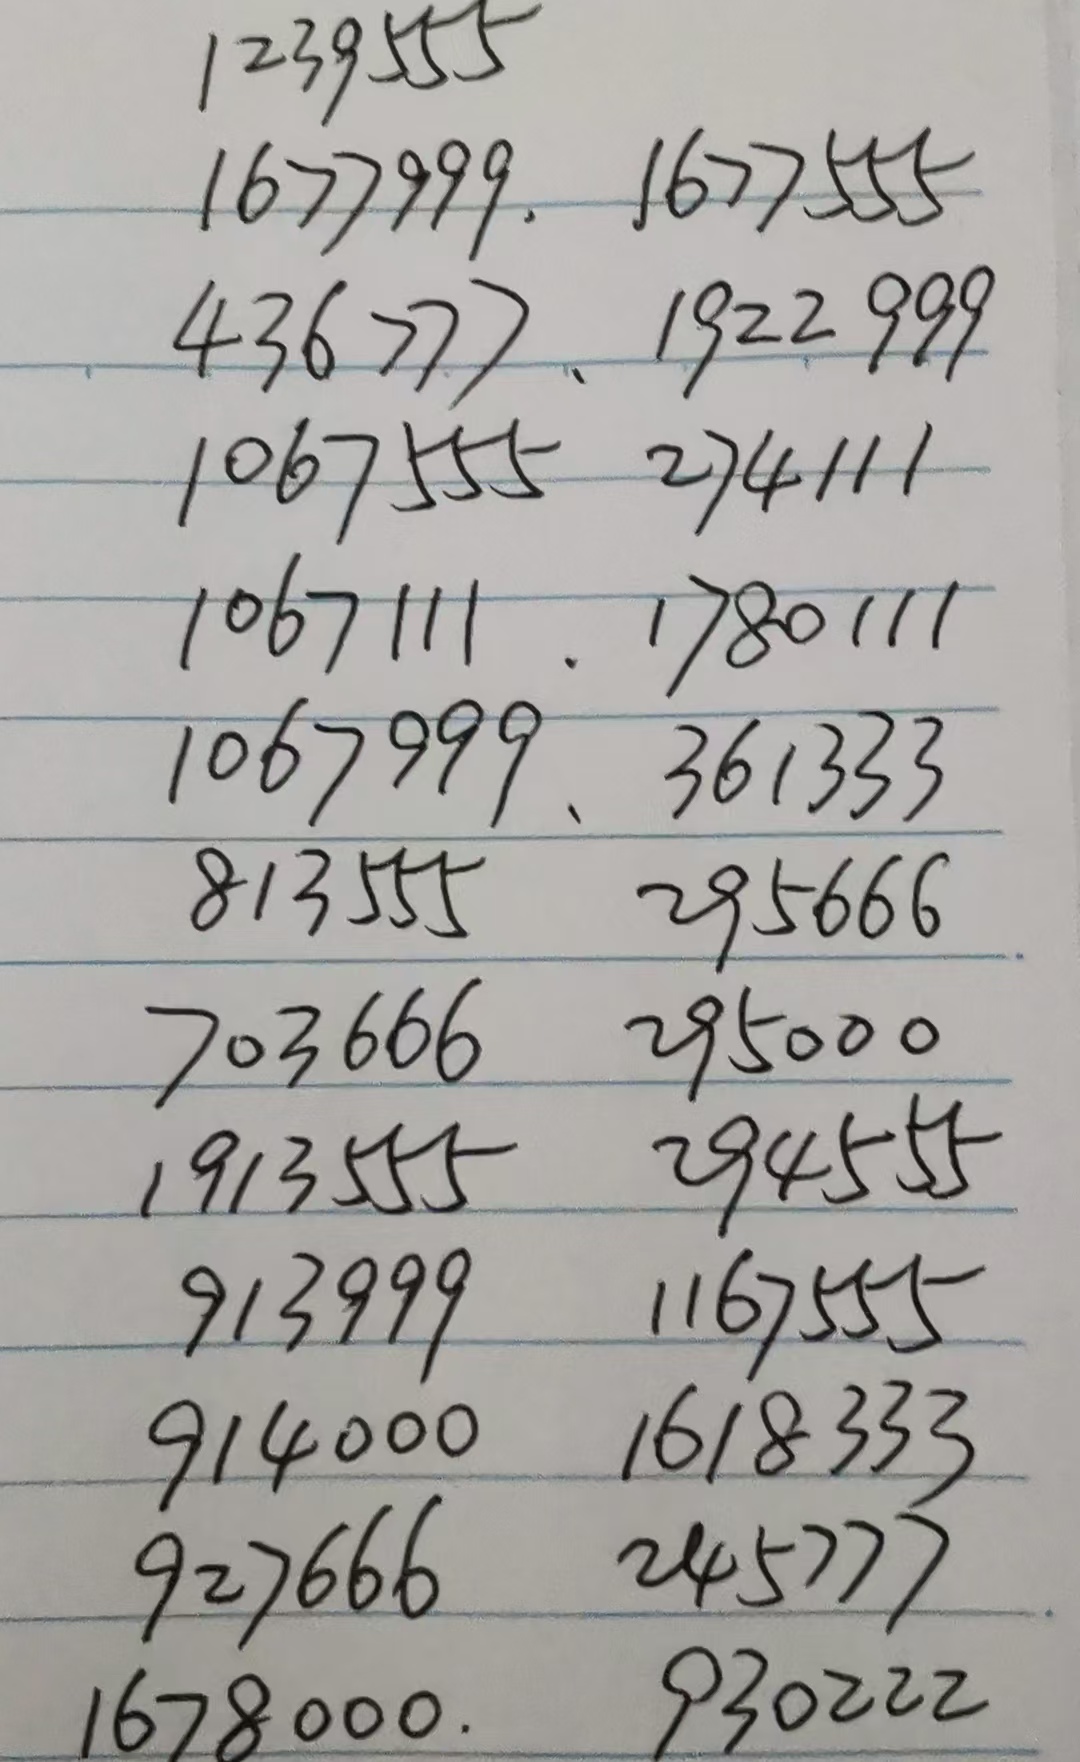 1239555
1677999. 1677555
436777、 1922999
1067555 274111
1067111 . 1780111
1067999、 361333
813555 295666
703666 295000
1913555 294555
913999 1167555
914000 1618333
927666 245777
1678000. 930222